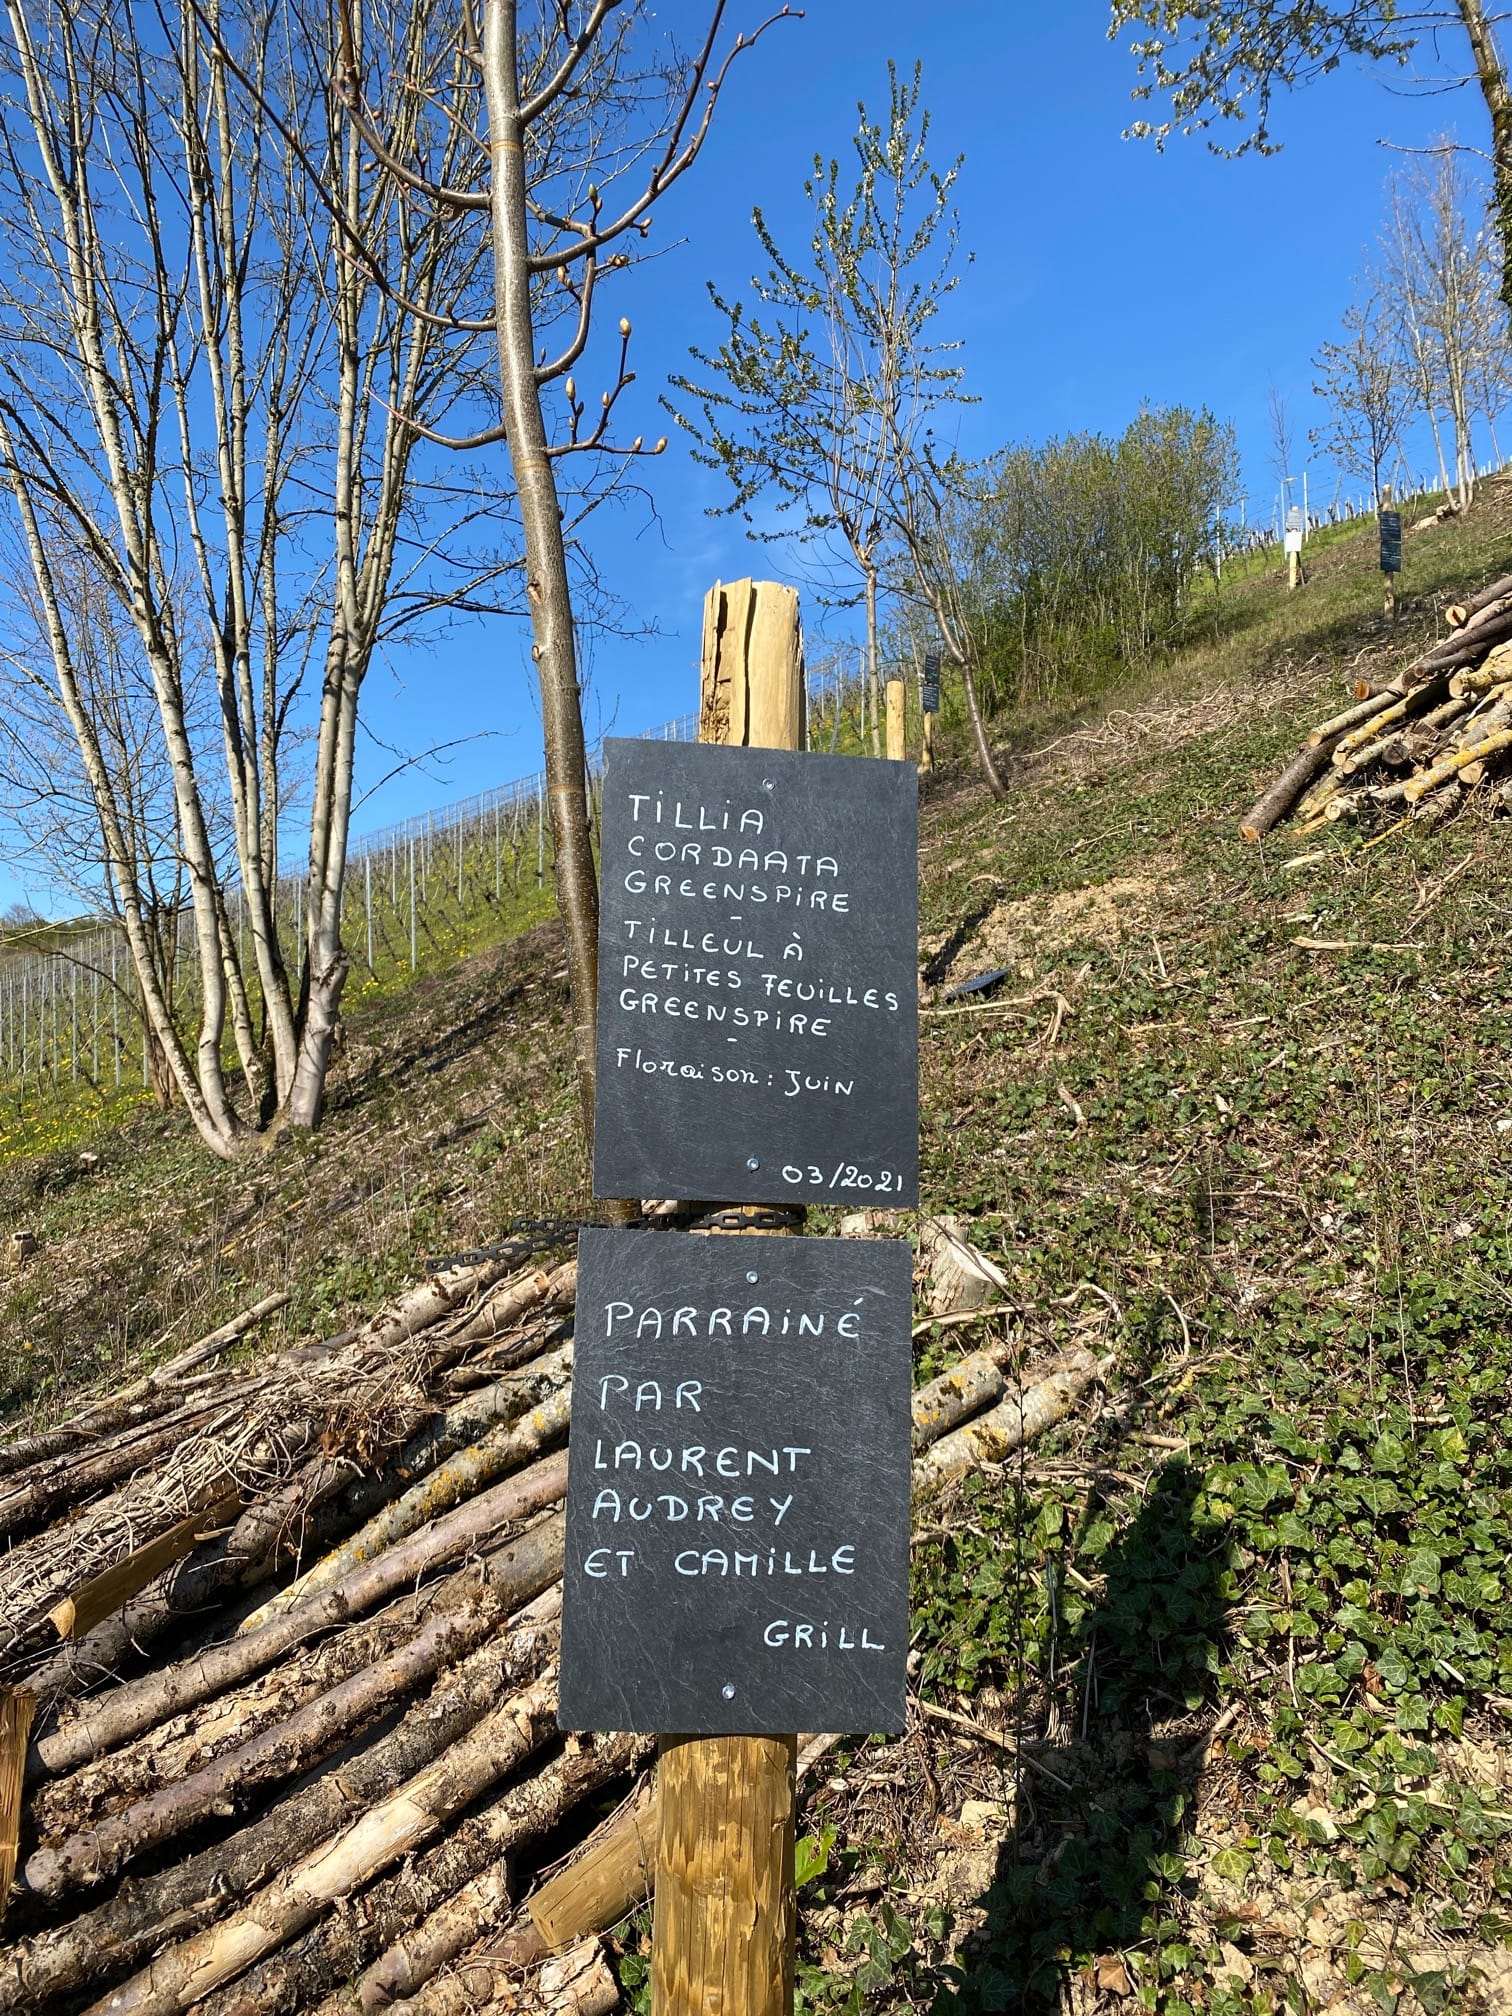 TiLLiA
CORDAATA
GREENSPiRE
-
TiLLEUL À
PETiTES FEUiLLES
GREENSPiRE
-
Floraison : JUiN
03/2021
PARRAiNÉ
PAR
LAURENT
AUDREY
ET CAMiLLE
GRiLL